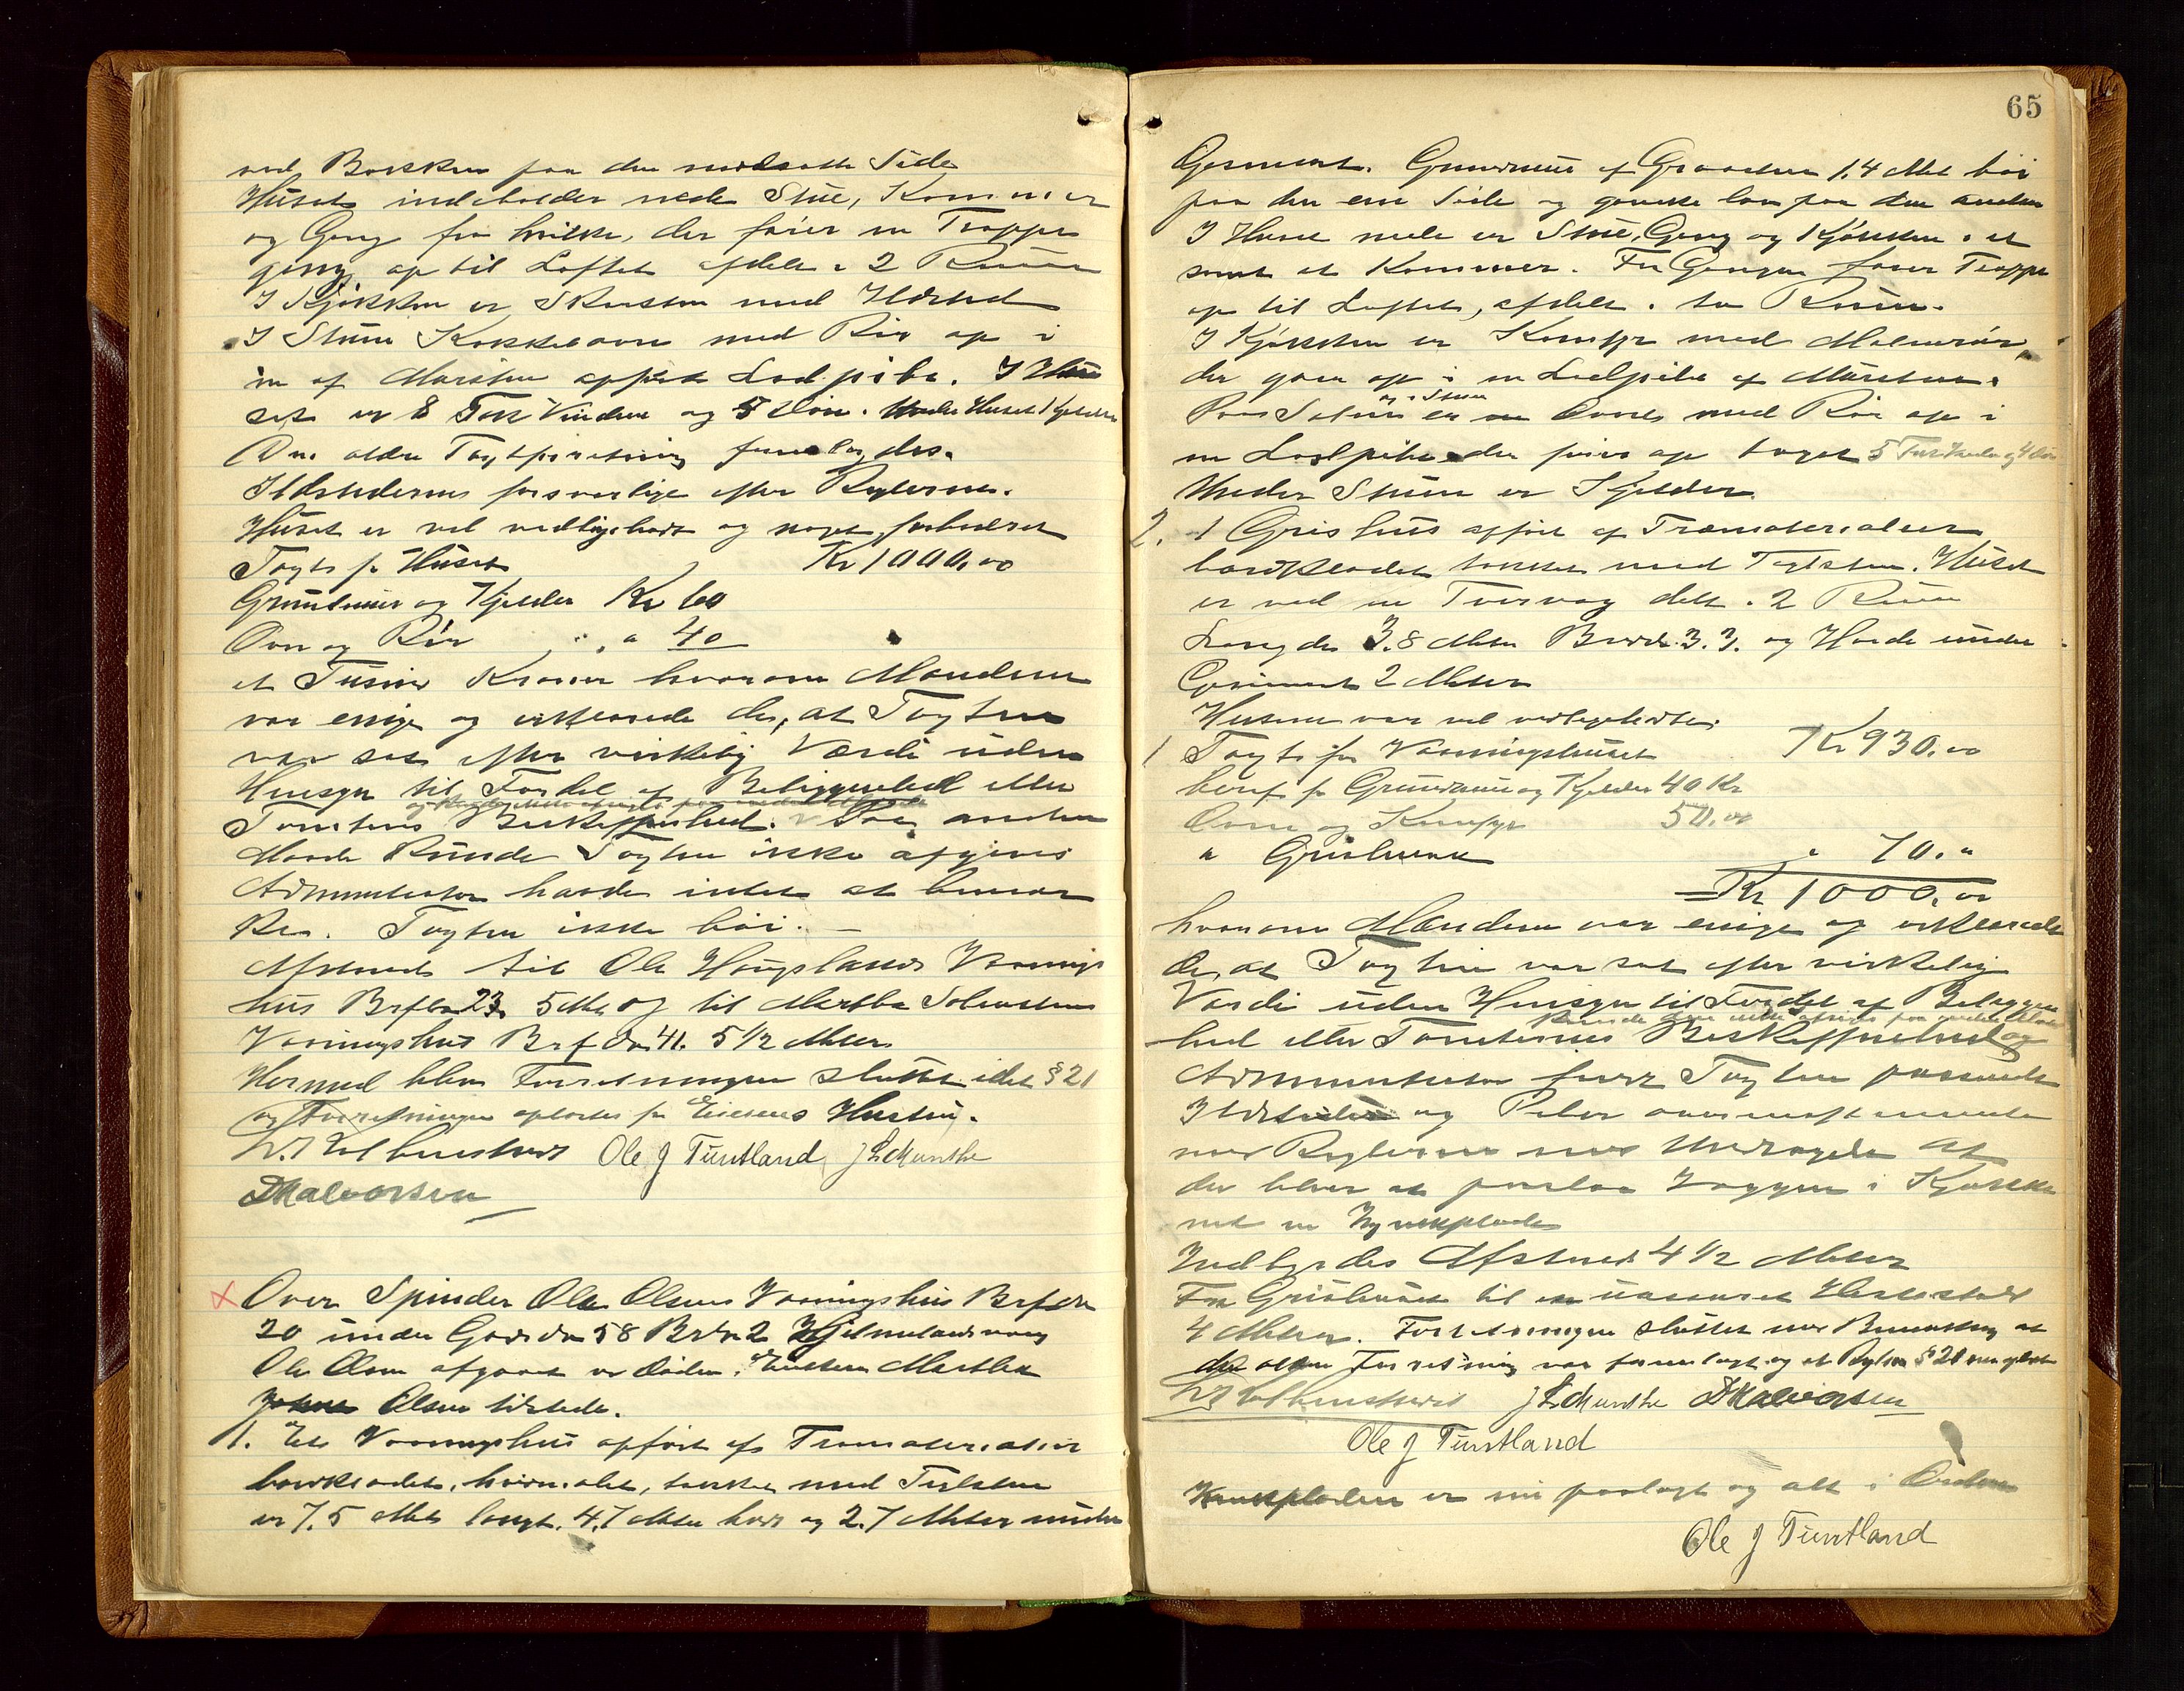 ved Bakken paa den modsatte Side
Huset indeholder nede Stue, Kammer
og Gang fra hvilken der fører en Trappe
gang op til Loftet afdelt i 2 Rum
I Kjøkken er Skorsten med Ildsted
I Stuen Kakkelovn med Rør op i
en af Mursten opført Lodpibe. I Hu
set er 8 Fag Vinduer og 5 Døre. Under Huset Kjelder
Den ældre Taxtforretning fremlagdes.
Ildstederne forsvarlige efter Reglerne.
Huset er vel vedligeholdt og noget forbedret
Taxt for Huset Kr 1000,00
Grundmur og Kjelder Kr 60
Ovn og Rør " " 40
et Tusind Kroner hvorom Mændene
var enige og erklærede de, at Taxten
var sat efter virkelig Værdi uden
Hensyn til Fordel af Beliggenhed eller
Tomtens Beskaffenhed. Paa anden
Maade kunde Taxten ikke afgives
Administrator havde intet at bemær
ke. Taxten ikke høi. —
Afstand til Ole Hauglands Vaanings
hus Brf No 23. 5 Mtr og til Martha Salvesens
Vaaningshus Brf No 41. 5 1/2 Meter
Hermed blev Forretningen sluttet idet § 21
og Forretningen oplæstes for Eierens Hustru.
Ole J Tuntland J L Munthe
D Halvorsen
x Over Spinder Ole Olsens Vaaningshus Brf No
20 under Gaards No 58 Br No 2 Hjelmelandsvaag
Ole Olsen afgaaet ved Døden. Enken Martha
Olsen tilstede.
1. Et Vaaningshus opført af Træmaterialier
bordklædt, hvidmalet, tækket med Teglsten
er 7.5 Mtr langt. 4.7 Meter bred og 2.7 Meter under
65
Gesimsen. Grundmur af Graasten 1.4 Met høi
paa den ene Side og ganske lav paa den anden
I Huset nede er Stue, Gang og Kjøkken
samt et Kammer. Fra Gangen fører Trappe
op til Loftet, afdelt i to Rum.
I Kjøkken er Komfyr med Malmrør,
der gaar op i en Lodpibe af Mursten.
og i Stuen
er en Ovn med Rør op i
en Lodpibe der fører op taget 5 Fag Vinduer og 4 Døre
Under Stuen er Kjelder
2. 1 Grishus opført af Træmaterialier
bordklædt tækket med Teglsten. Huset
er ved en Tvervæg delt i 2 Rum
Længde 3.8 Meter Bredde 3.3. og Høide under
Gesimsen 2 Meter
Husene var vel vedligeholdte.
1 Taxt for Vaaningshuset Kr 930,00
heraf for Grundmur og Kjelder 40 Kr
Ovn og Komfyr 50.00
" Grishuset " 70. "
Kr 1000,00
hvorom Mændene var enige og erklærede
de, at Taxten var sat efter virkelig
Værdi uden Hensyn til Fordel af Beliggen
hed eller Tomternes Beskaffenhed og
Administrator fandt Taxten passende
Ildsteder og Piber overensstemmende
med Reglerne med Undtagelse at
der bliver at paaslaa Væggen i Kjøkke
net en
Indbyrdes Afstand 4 1/2 Meter
Fra Grishuset til en uassureret Hestestald
4 Meter. Forretningen sluttet med Bemerkning at
den ældre Forretning var fremlagt og at Reglen § 21
J L Munthe D Halvorsen
Ole J Tuntland
er nu paalagt og alt i Orden
Ole J Tuntland